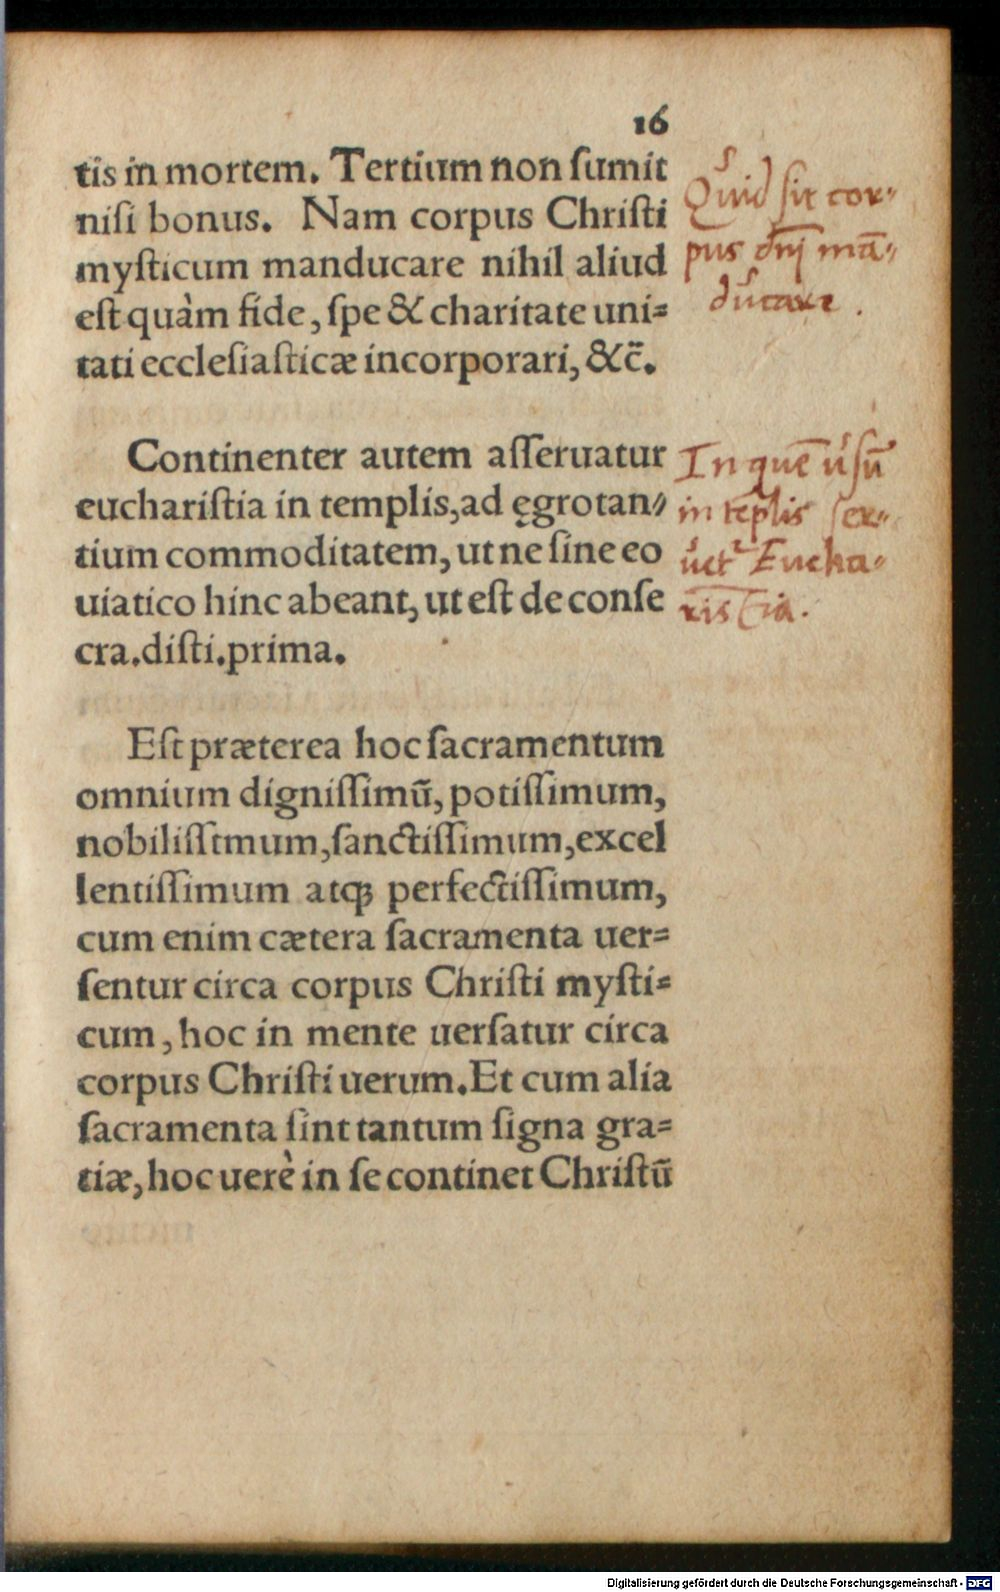 16
tis in mortem. Tertium non ſumit
niſi bonus. Nam corpus Chriſti
myſticum manducare nihil aliud
eſt quàm fide, ſpe & charitate uni-
tati eccleſiaſticæ incorporari, &c̃.
Quid ſit cor-
pus dn̄j mā-
ducare.
Continenter autem aſſeruatur
euchariſtia in templis, ad ęgrotan-
tium commoditatem, ut ne ſine eo
uiatico hinc abeant, ut eſt de conſe
cra. diſti. prima.
In quē uſū
in tēplis ſer-
uet᷑ Eucha-
ristia.
Eſt præterea hoc ſacramentum
omnium digniſſimũ, potiſſimum,
nobiliſſtmum, ſanctiſſimum, excel
lentiſſimum atꝗ perfectiſſimum,
cum enim cætera ſacramenta uer-
ſentur circa corpus Chriſti myſti-
cum, hoc in mente uerſatur circa
corpus Chriſti uerum. Et cum alia
ſacramenta ſint tantum ſigna gra-
tiæ, hoc uerè in ſe continet Chriſtũ
Digitalisierung gefördert durch die Deutsche Forschungsgemeinschaft - DFG